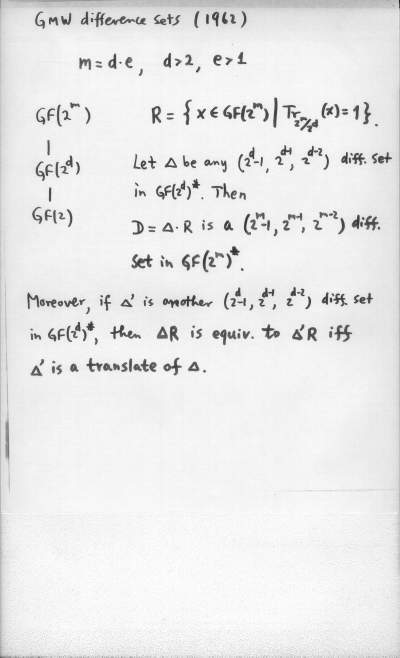 GMW difference sets (1962)
m = d·e, d>2, e>1
GF(2^m) R = { x ∈ GF(2^m) | Tr_{2^m/2^d} (x) = 1 }.
|
GF(2^d) Let Δ be any (2^d-1, 2^{d-1}, 2^{d-2}) diff. set
| in GF(2^d)*. Then
GF(2) D = Δ·R is a (2^m-1, 2^{m-1}, 2^{m-2}) diff.
set in GF(2^m)*.
Moreover, if Δ' is another (2^d-1, 2^{d-1}, 2^{d-2}) diff. set
in GF(2^d)*, then ΔR is equiv. to Δ'R iff
Δ' is a translate of Δ.